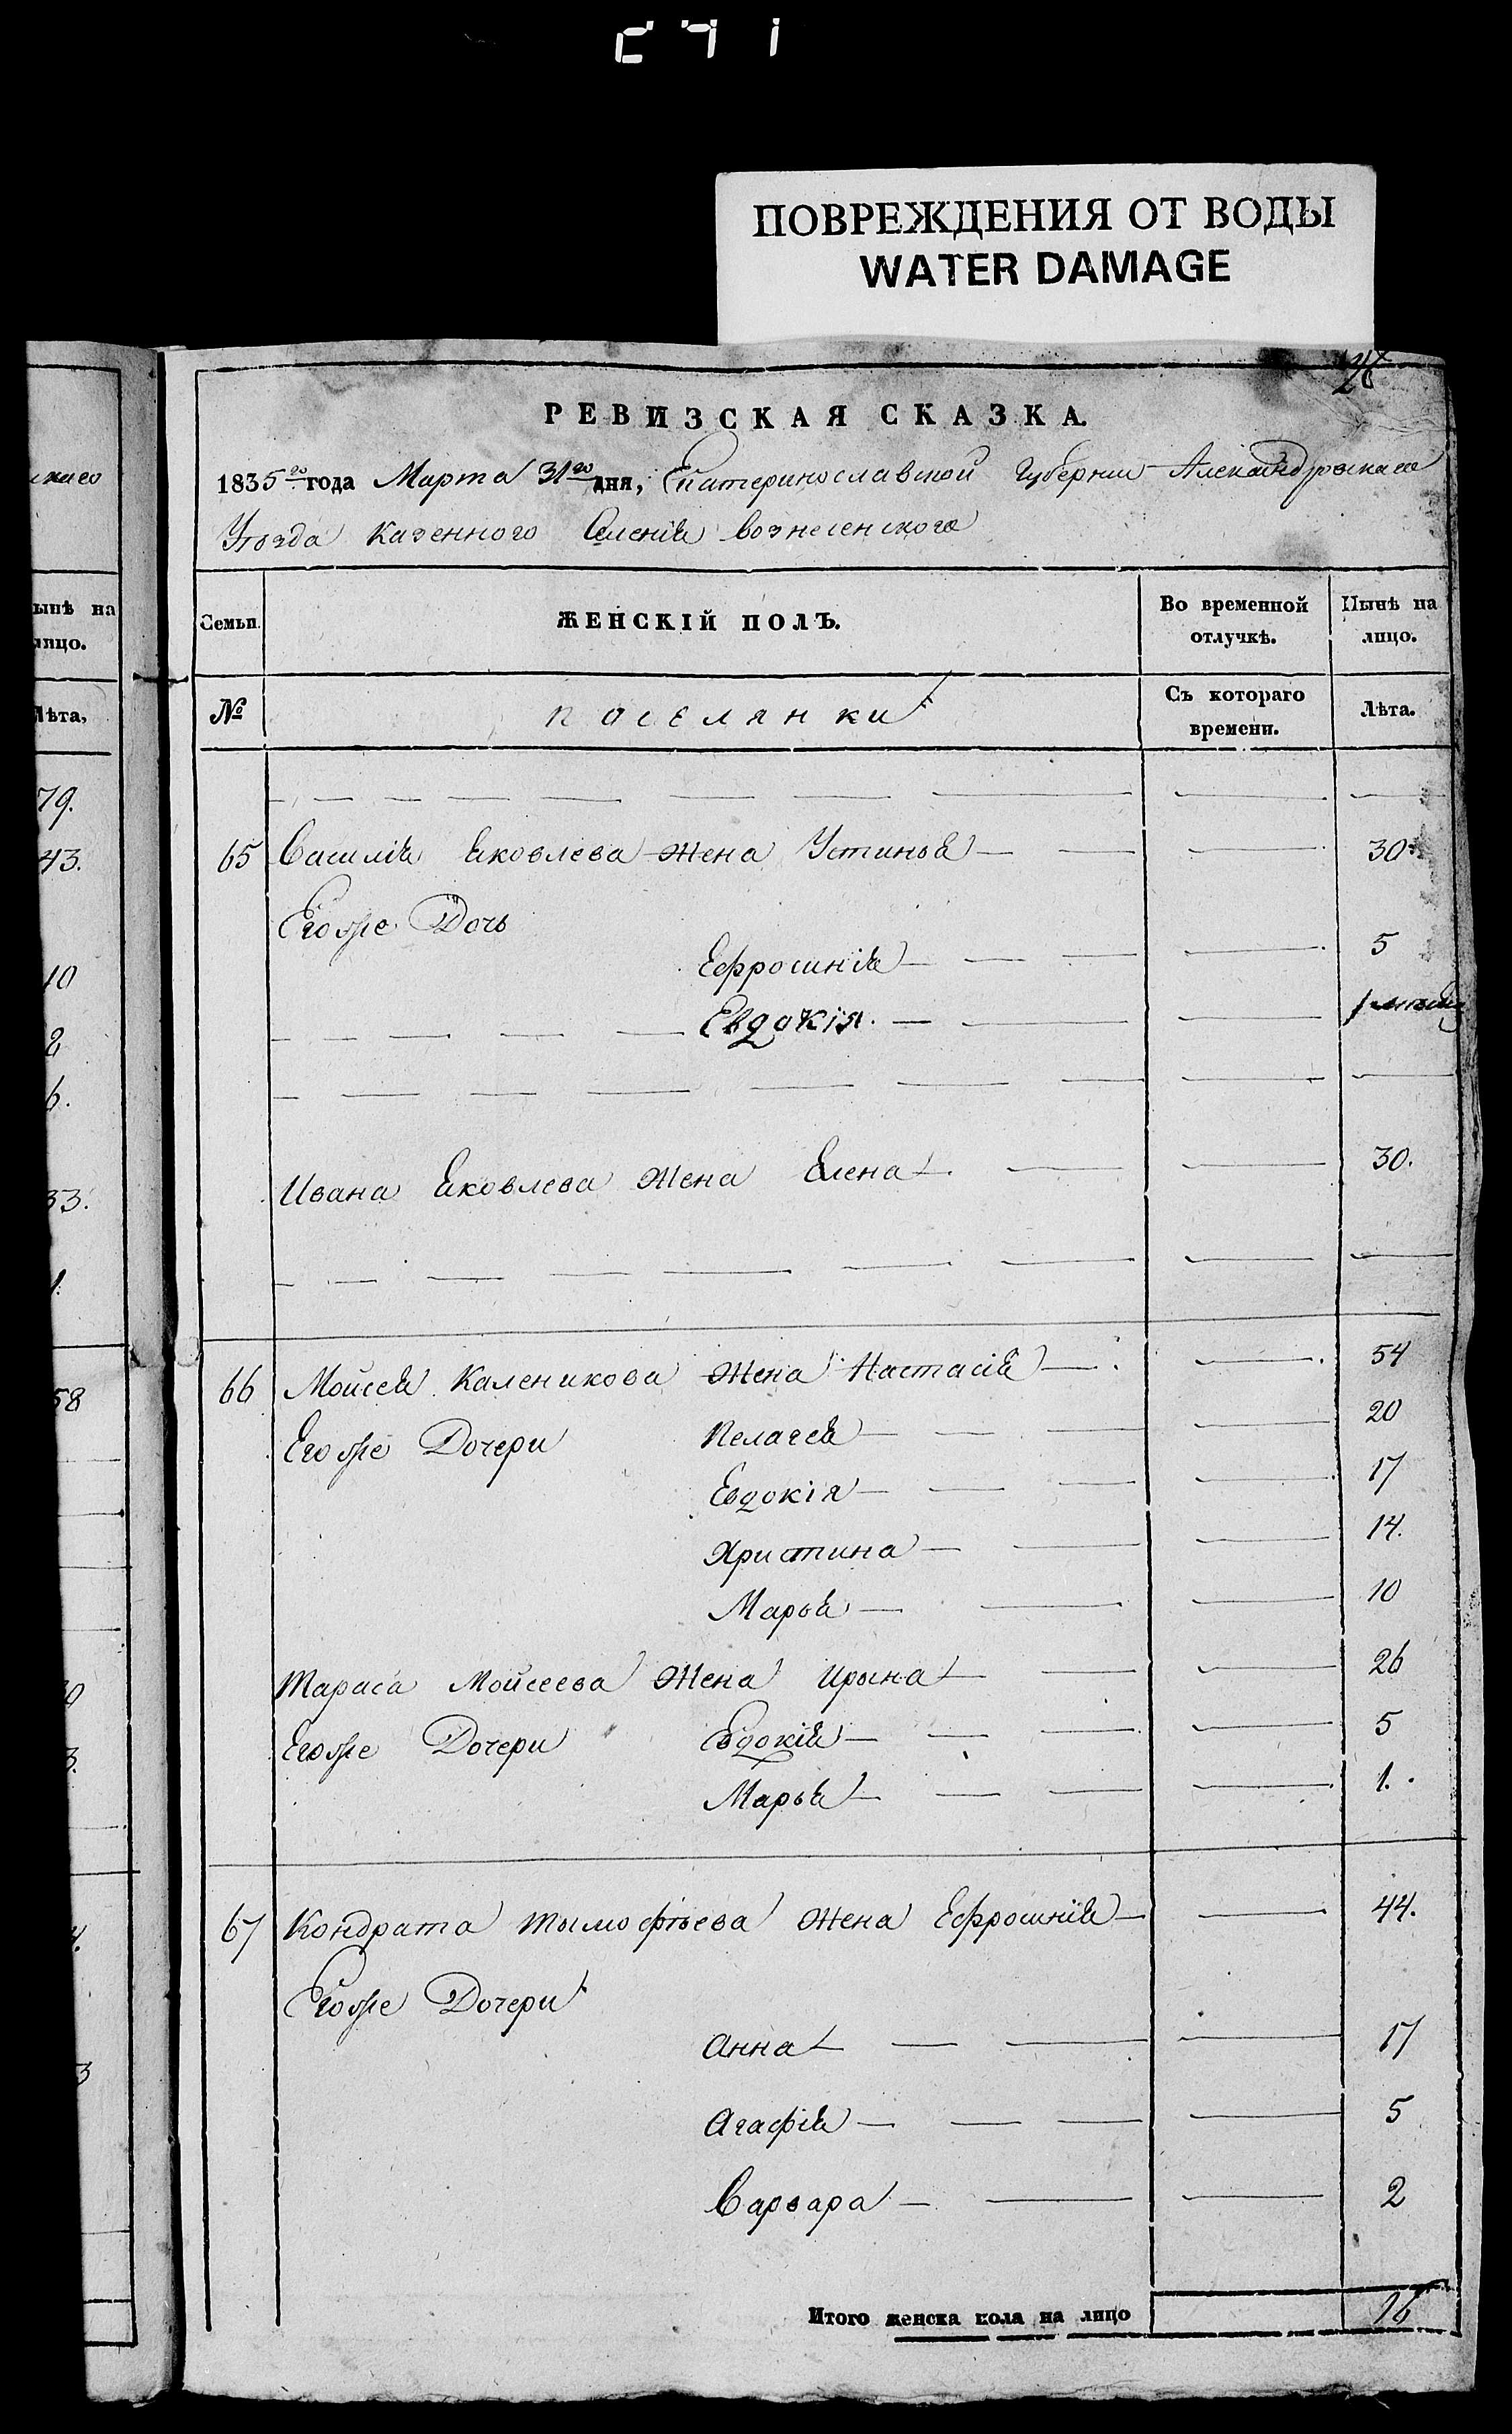 ПОВРЕЖДЕНИЯ ОТ ВОДЫ
WATER DAMAGE
РЕВИЗСКАЯ СКАЗКА.
1835го года Марта 31го дня, Екатеринославской Губернии Александровскаго
Уѣзда Казенного Селенія Вознесенского
Семьи. ЖЕНСКІЙ ПОЛЪ. Во временной отлучкѣ. Нынѣ на лицо.
№ Поселянки Съ котораго времени. Лѣта.
65 Василія Яковлева Жена Устинья 30
Егоже Дочь
Ефросинія 5
Евдокія. 1
Ивана Яковлева Жена Елена 30.
66 Мойсея Каленикова Жена Настасія 54
Егоже Дочери Пелагея 20
Евдокія 17
Христина 14.
Марья 10
Тараса Мойсеева Жена Ирына 26
Егоже Дочери Евдокія 5
Марья 1.
67 Кондрата Тымофѣева Жена Ефросинія 44.
Егоже Дочери
Анна 17
Агафія 5
Варвара 2
Итого женска пола на лицо 16
ынѣ на
лицо.
Лѣта,
79.
43.
10
2
6.
33.
1.
58